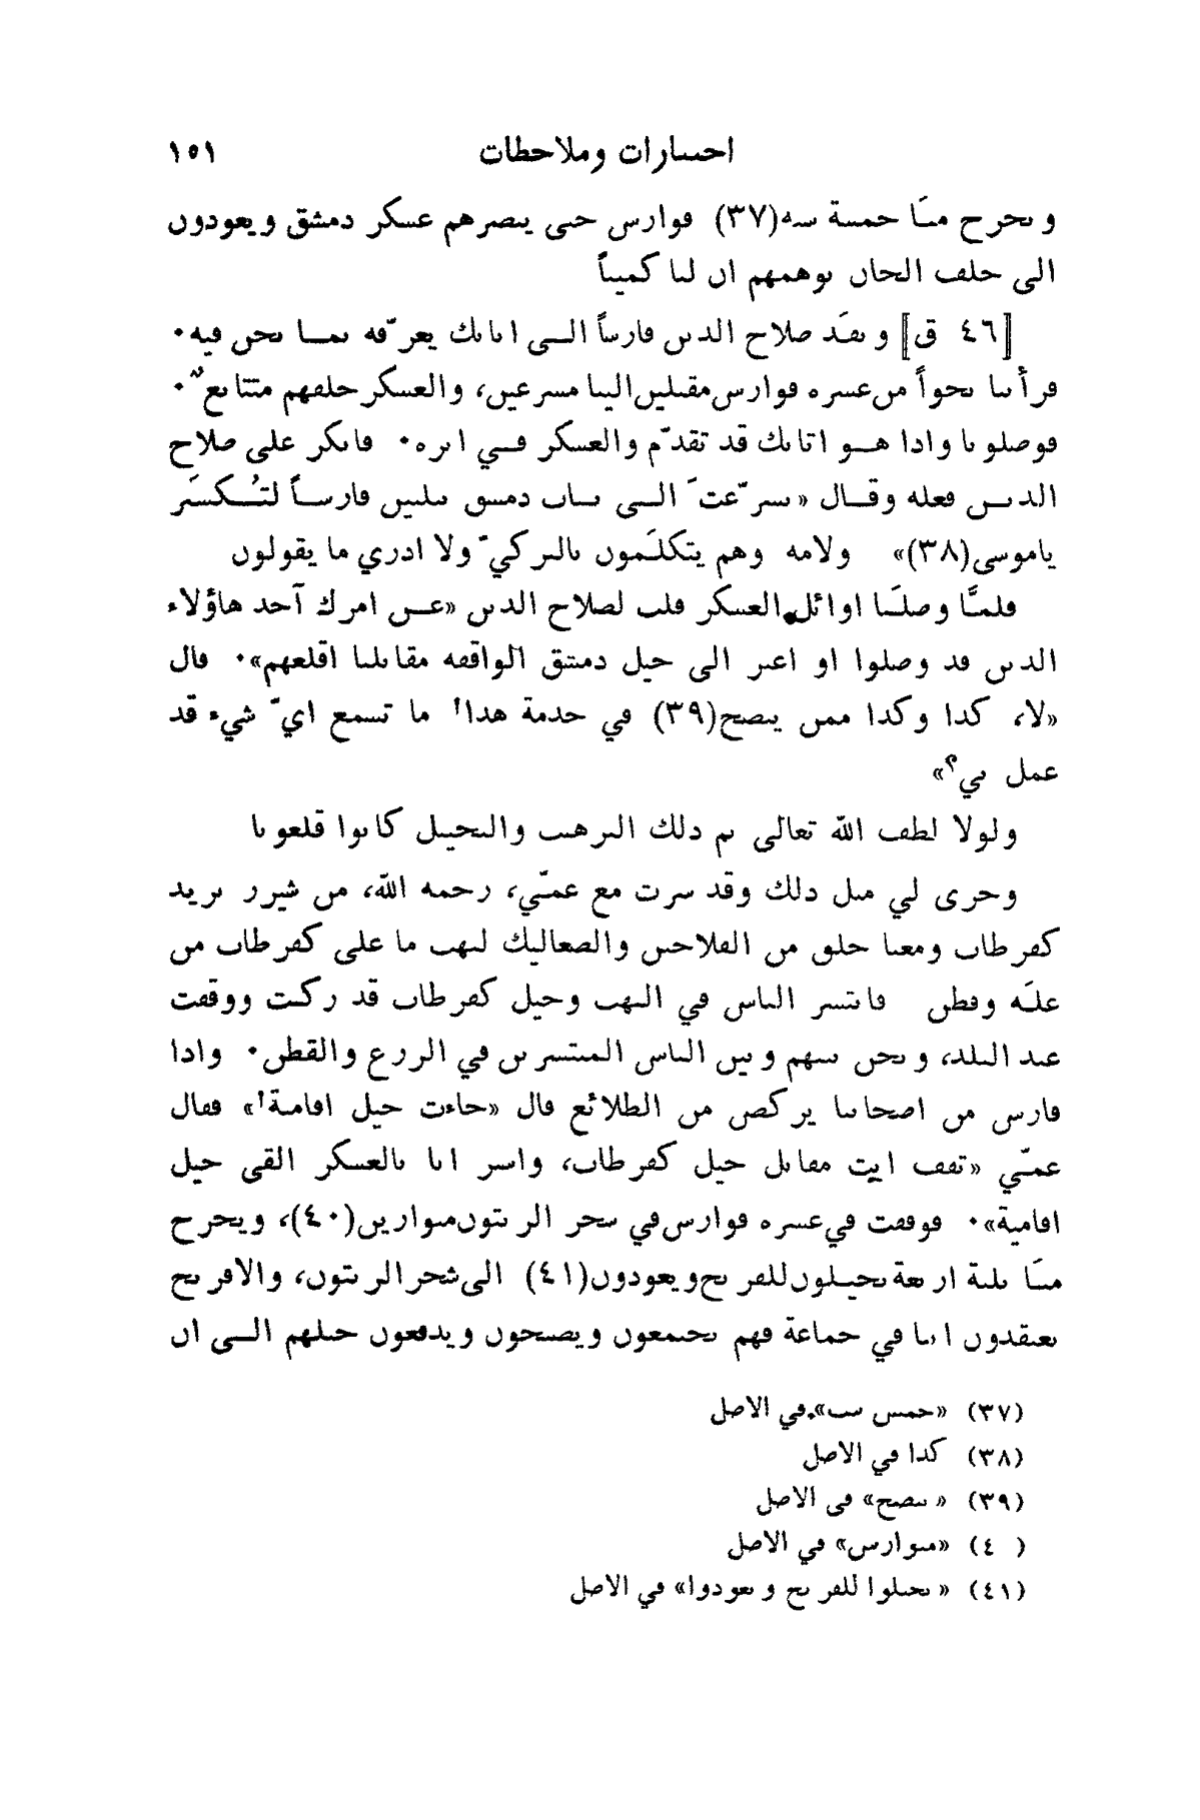 اختبارات وملاحظات ١٥١
ويخرج منّا خمسة ستة(٣٧) فوارس حتى يبصرهم عسكر دمشق ويعودون
الى خلف الخان نوهمهم ان لنا كميناً
[٤٦ ق] ونفّذ صلاح الدين فارساً الى اتابك يعرّفه بما نحن فيه.
فرأينا نحواً من عشرة فوارس مقبلين الينا مسرعين، والعسكر خلفهم متتابعٌ.
فوصلونا واذا هو اتابك قد تقدّم والعسكر في اثره. فانكر على صلاح
الدين فعله وقال «تسرّعتَ الى باب دمشق بثلاثين فارساً لتُكسَر
ياموسى(٣٨)» ولامه وهم يتكلّمون بالتركيّ ولا ادري ما يقولون
فلمّا وصلَنا اوائل العسكر قلت لصلاح الدين «عن امرك آخذ هاؤلاء
الذين قد وصلوا او اعبر الى خيل دمشق الواقفة مقابلنا اقلعهم». قال
«لا، كذا وكذا ممن ينصح(٣٩) في خدمة هذا! ما تسمع ايّ شيء قد
عمل بي؟»
ولولا لطف الله تعالى ثم ذلك الترهيب والتخييل كانوا قلعونا
وجرى لي مثل ذلك وقد سرت مع عمّي، رحمه الله، من شيزر نريد
كفرطاب ومعنا خلق من الفلاحين والصعاليك لنهب ما على كفرطاب من
غلّة وقطن فانتشر الناس في النهب وخيل كفرطاب قد ركبت ووقفت
عند البلد، ونحن بينهم وبين الناس المنتشرين في الزرع والقطن. واذا
فارس من اصحابنا يركض من الطلائع قال «جاءت خيل افامية!» فقال
عمّي «تقف انت مقابل خيل كفرطاب، واسير انا بالعسكر القى خيل
افامية». فوقفت في عشرة فوارس في شجر الزيتون متوارين(٤٠)، ويخرج
منّا ثلثة اربعة يخيلون للفرنج ويعودون(٤١) الى شجر الزيتون، والافرنج
يعتقدون اننا في جماعة فهم يجتمعون ويصيحون ويدفعون خيلهم الى ان
(٣٧) «خمس ست» في الاصل
(٣٨) كذا في الاصل
(٣٩) «ينصح» في الاصل
(٤٠) «متوارس» في الاصل
(٤١) «يخيلوا للفرنج ويعودوا» في الاصل